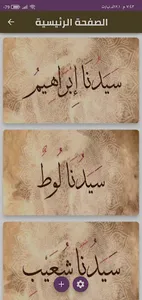 الصفحة الرئيسية
سَيِّدُنَا إِبْرَاهِيمُ
سَيِّدُنَا لُوطٌ
سَيِّدُنَا شُعَيْب